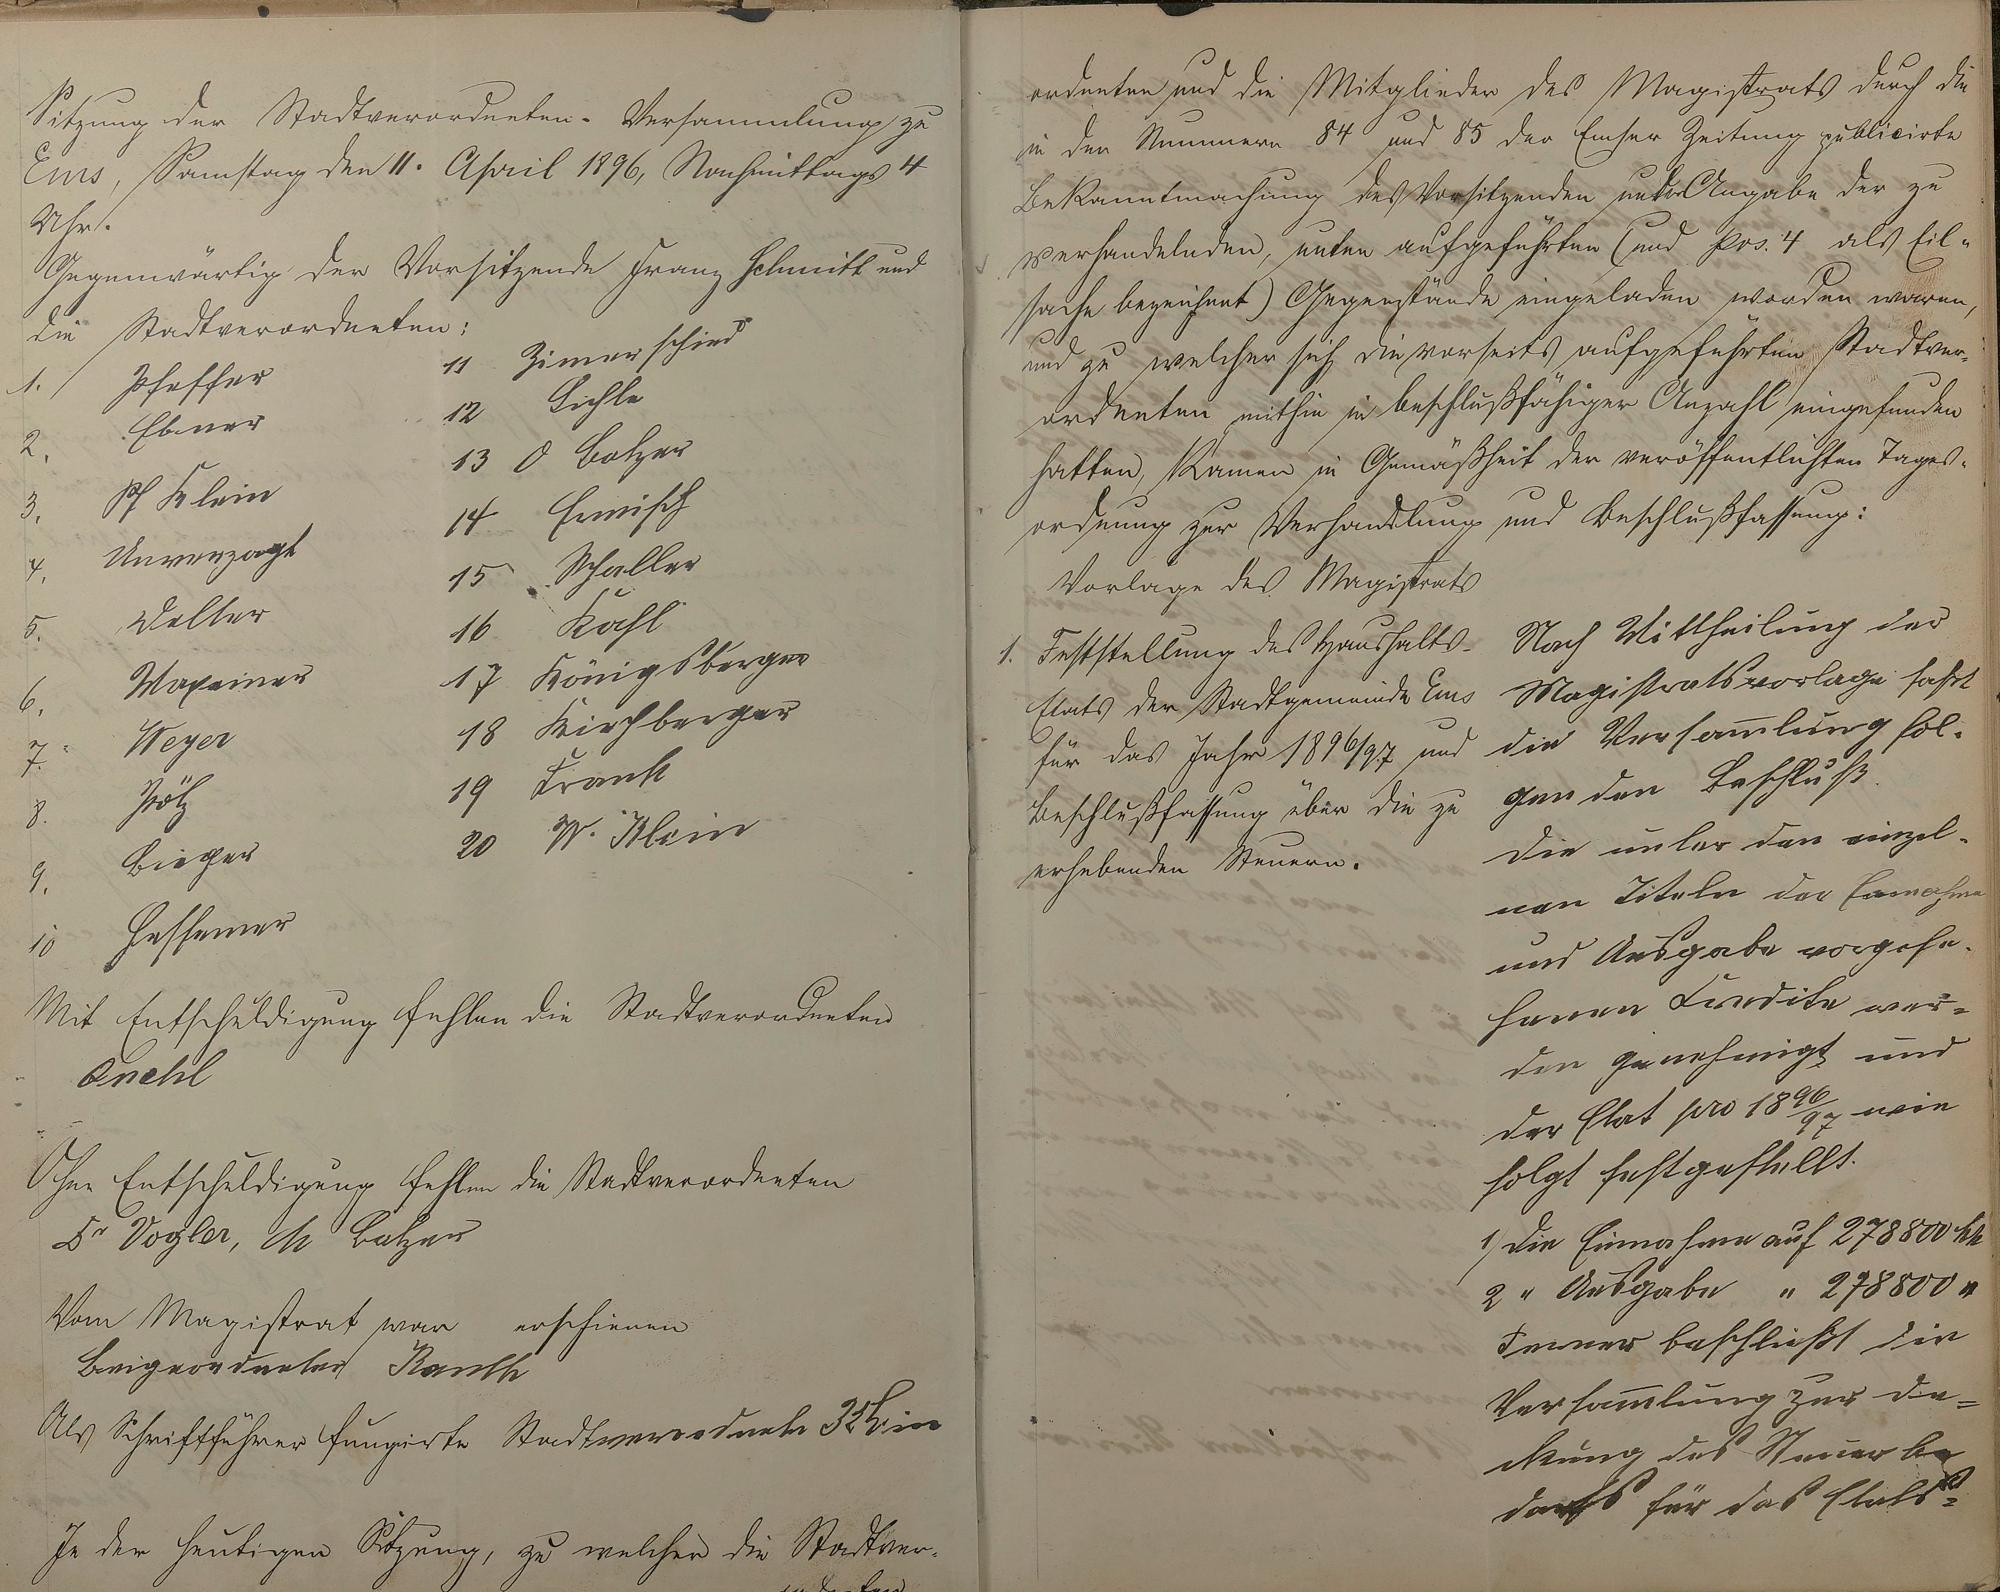 Sitzung der Stadtverordneten-Versammlung zu
Ems, Samstag den 11. April 1896, Nachmittags 4
Uhr.
Gegenwärtig der Vorsitzende Franz Schmitt und
die Stadtverordneten:
1. Pfeffer
2. Ebner
3. Ph Klein
4. Unverzagt
5.
6.
7. Meyer
8. Pötz
9. Bieger
10 Hessemer
11 Zimerschied
12
13 O Balzer
14 Ermisch
15 Schaller
16
17 Königsberger
18 Kirchberger
19 Frank
20 W. Klein
Mit Entschuldigung fehlen die Stadtverordneten
Ohne Entschuldigung fehlen die Stadtverordneten
Dr Vogler, Balzer
Vom Magistrat war erschienen
Beigeordneter
Als Schriftführer fungirte Stadtverordnete
In der heutigen Sitzung, zu welcher die Stadtver-
ordneten
ordneten und die Mitglieder des Magistrats durch die
in den Nummern 84 und 85 der Emser Zeitung publicirte
Bekanntmachung des Vorsitzenden unter Angabe der zu
verhandelnden, unten aufgeführten (und pos. 4 als Eil-
sache bezeichnet) Gegenstände eingeladen worden waren,
und zu welcher sich die vorseits aufgeführten Stadtver-
ordneten mithin in beschlußfähiger Anzahl eingefunden
hatten, kamen in Gemäßheit der veröffentlichten Tages-
ordnung zur Verhandlung und Beschlußfassung:
Vorlage des Magistrats
1. Feststellung des Haushalts-
Etats der Stadtgemeinde Ems
für das Jahr 1896/97 und
Beschlußfassung über die zu
erhebenden Steuern.
Nach Mittheilung der
Magistratsvorlage faßt
die Versamlung fol-
genden Beschluß.
Die unter den einzel-
nen Titeln der Einnahme
und Ausgabe vorgese-
henen Credite wer-
den genehmigt und
der Etat pro 1896/97 wie
folgt festgestellt.
1) die Einnahme auf 278800 Mk
2 " Ausgabe " 278800 "
Ferner beschließt die
Versamlung zur De-
ckung des Steuerbe
darfs für das Etats-